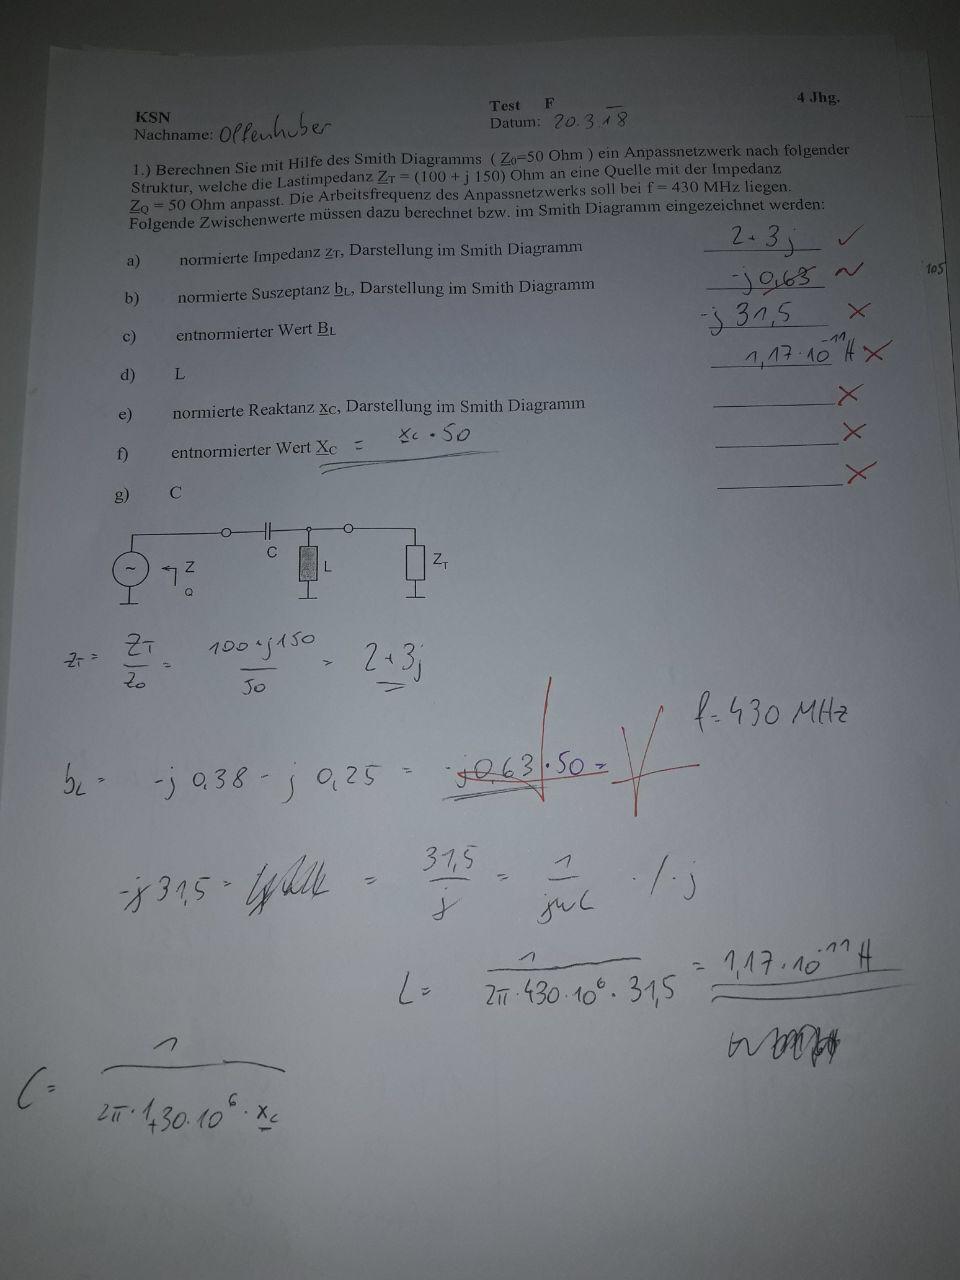 KSN
Test F
4 Jhg.
Nachname: Offenhuber
Datum: 20.3.18
1.) Berechnen Sie mit Hilfe des Smith Diagramms ( Z0=50 Ohm ) ein Anpassnetzwerk nach folgender
Struktur, welche die Lastimpedanz ZT = (100 + j 150) Ohm an eine Quelle mit der Impedanz
ZQ = 50 Ohm anpasst. Die Arbeitsfrequenz des Anpassnetzwerks soll bei f = 430 MHz liegen.
Folgende Zwischenwerte müssen dazu berechnet bzw. im Smith Diagramm eingezeichnet werden:
a) normierte Impedanz zT, Darstellung im Smith Diagramm 2+3j ✓
b) normierte Suszeptanz bL, Darstellung im Smith Diagramm -j0,63 ~
105
c) entnormierter Wert BL -j 31,5 ×
d) L 1,17·10^-11 H ×
e) normierte Reaktanz xC, Darstellung im Smith Diagramm ×
f) entnormierter Wert XC = xC · 50 ×
g) C ×
C
L
ZT
~
Z
Q
zT = ZT/Z0 = 100+j150/50 = 2+3j
f=430 MHz
bL = -j 0,38 - j 0,25 = -j0,63 ·50 =
-j31,5 = = 31,5/j = 1/jωL · /·j
L = 1/2π·430·10^6·31,5 = 1,17·10^-11 H
C = 1/2π·430·10^6·xC